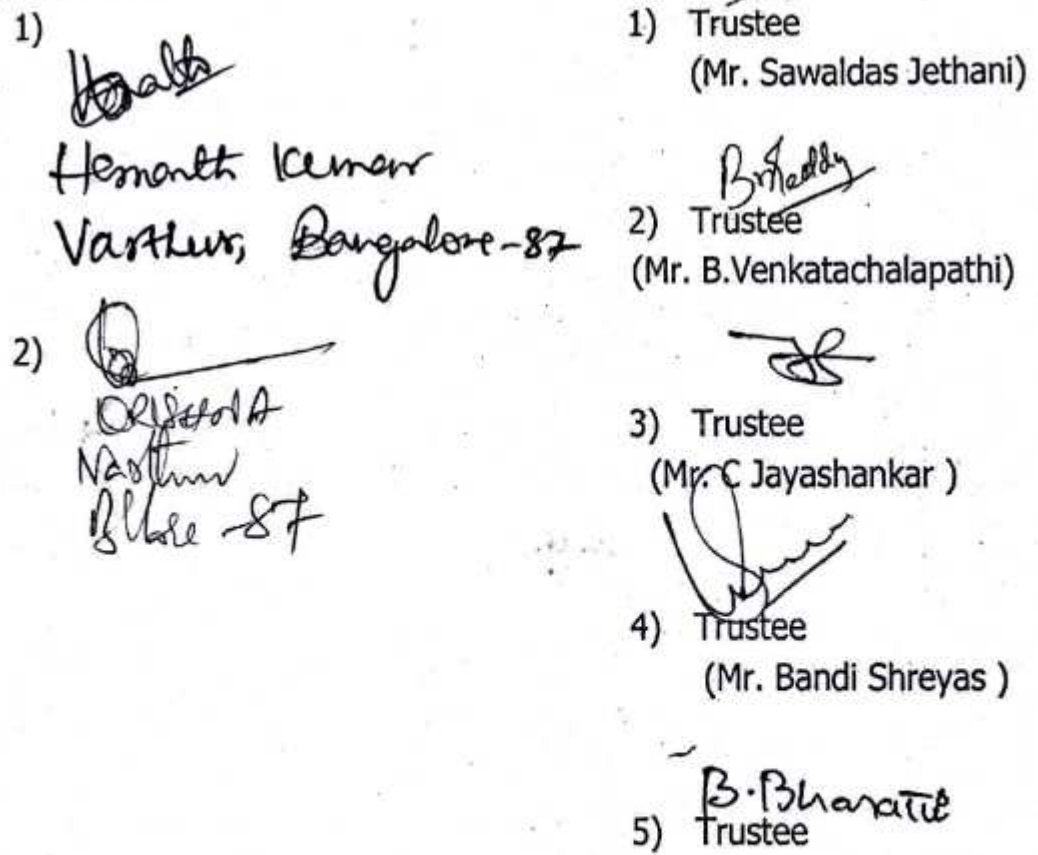 1)
Hemanth Kumar
Varthur, Bangalore-87
2)
Varthur
B'lore -87
1) Trustee
(Mr. Sawaldas Jethani)
2) Trustee
(Mr. B.Venkatachalapathi)
3) Trustee
(Mr. C Jayashankar )
4) Trustee
(Mr. Bandi Shreyas )
B.Bharati
5) Trustee